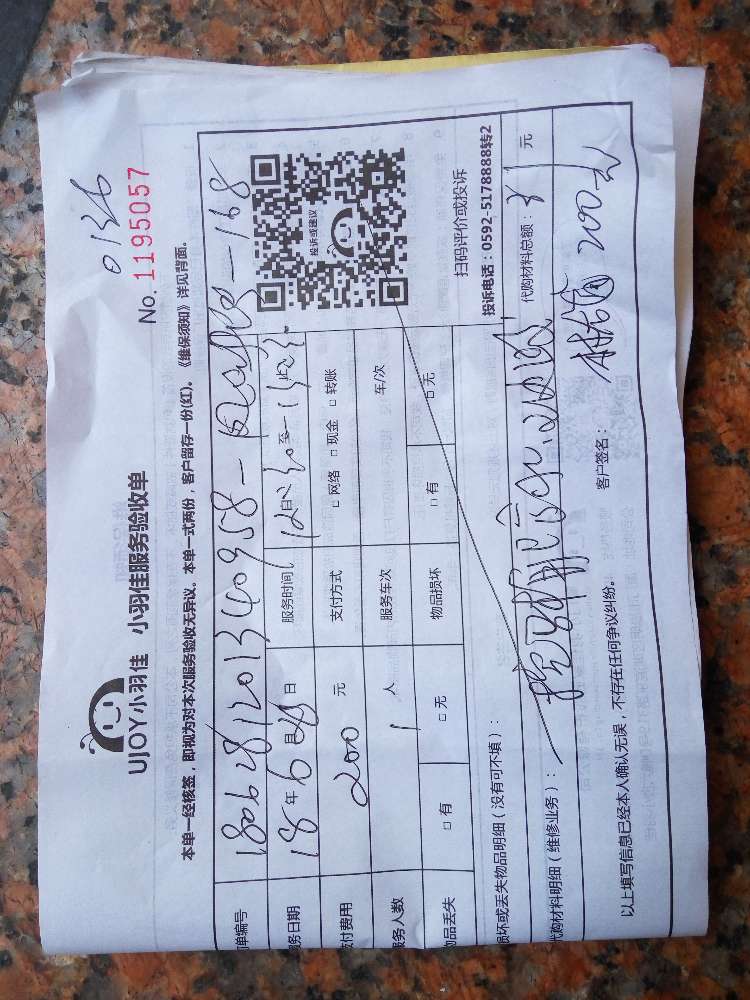 0126
No. 1195057
UJOY小羽佳 小羽佳服务验收单
本单一经核签，即视为对本次服务验收无异议。本单一式两份，客户留存一份(红)。《维保须知》详见背面。
单编号 1806281201340958
168
务日期 18年6月28日 服务时间 自 至
付费用 200元 支付方式 □ 网络 □ 现金 □ 转账
务人数 1人 服务车次 车/次
物品丢失 □ 有 □ 无 物品损坏 □ 有 □ 无
投诉或建议
扫码评价或投诉
投诉电话：0592-5178888转2
损坏或丢失物品明细（没有可不填）：
代购材料明细（维修业务）：
代购材料总额：¥ 元
以上填写信息已经本人确认无误，不存在任何争议纠纷。
客户签名： 200元